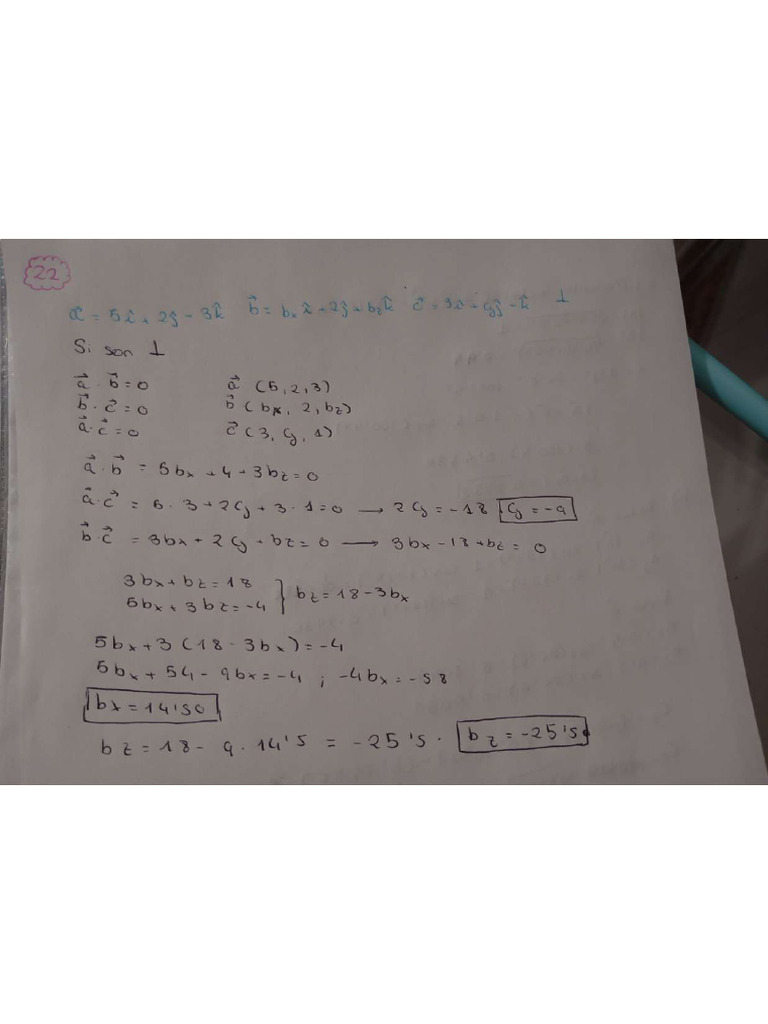 22
a⃗ = 5î + 2ĵ - 3k̂ b⃗ = bₓî + 2ĵ + b_z k̂ c⃗ = 3î + cyĵ - k̂ ⊥
Si son ⊥
a⃗ · b⃗ = 0 a⃗ (5, 2, 3)
b⃗ · c⃗ = 0 b⃗ (bx, 2, bz)
a⃗ · c⃗ = 0 c⃗ (3, cy, 1)
a⃗ · b⃗ = 5bx + 4 + 3bz = 0
a⃗ · c⃗ = 5 · 3 + 2cy + 3 · 1 = 0 → 2cy = -18 cy = -9
b⃗ · c⃗ = 3bx + 2cy + bz = 0 → 3bx - 18 + bz = 0
3bx + bz = 18
5bx + 3bz = -4 } bz = 18 - 3bx
5bx + 3 (18 - 3bx) = -4
5bx + 54 - 9bx = -4 ; -4bx = -58
bx = 14'50
bz = 18 - 9 · 14'5 = -25'5 · bz = -25'5